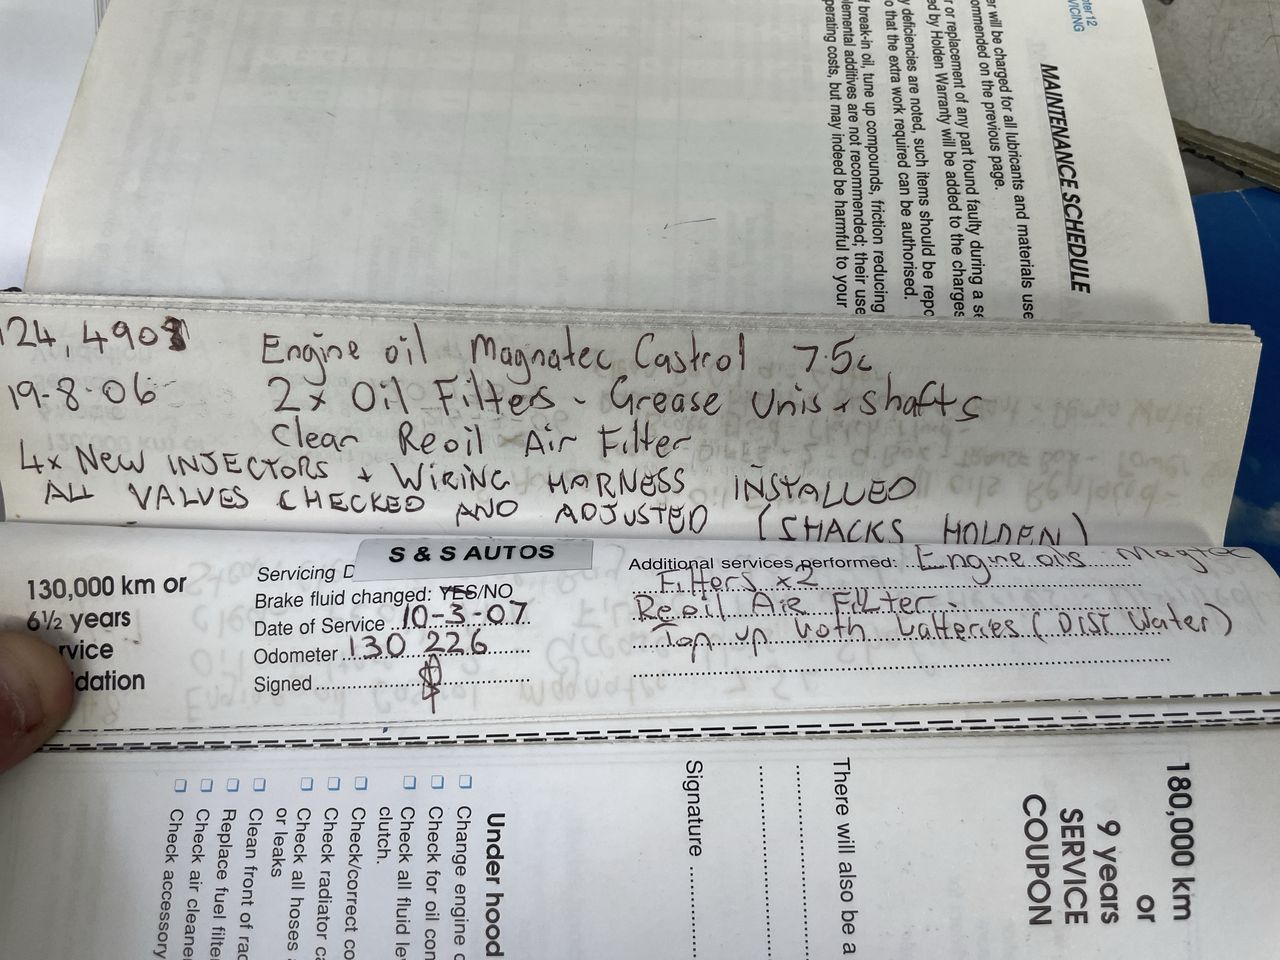 pter 12
VICING
MAINTENANCE SCHEDULE
er will be charged for all lubricants and materials use
ommended on the previous page.
r or replacement of any part found faulty during a se
ed by Holden Warranty will be added to the charges
y deficiencies are noted, such items should be repo
o that the extra work required can be authorised.
f break-in oil, tune up compounds, friction reducing
lemental additives are not recommended; their use
perating costs, but may indeed be harmful to your
124,490 Engine oil Magnatec Castrol 7.5L
19-8-06 2x Oil Filters - Grease Unis + shafts
Clean Reoil Air Filter
4x New INJECTORS + WIRING HARNESS INSTALLED
ALL VALVES CHECKED AND ADJUSTED (SHACKS HOLDEN)
S & S AUTOS
130,000 km or
6½ years
rvice
idation
Servicing D
Brake fluid changed: YES/NO
Date of Service 10-3-07
Odometer 130 226
Signed
Additional services performed: Engine oils Magtec
Filters x2
Reoil AIR FILTER.
Top up both batteries (DIST Water)
180,000 km
or
9 years
SERVICE
COUPON
There will also be a
Signature
Under hood
Change engine o
Check for oil con
Check all fluid le
clutch.
Check/correct co
Check radiator ca
Check all hoses a
or leaks
Clean front of rad
Replace fuel filter
Check air cleaner
Check accessory